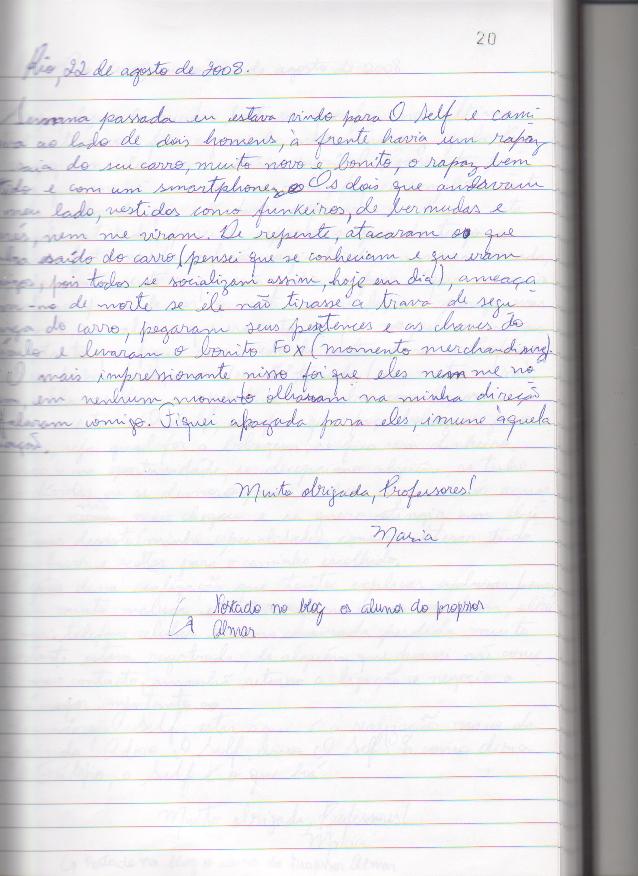 20
Rio, 22 de agosto de 2008.
Semana passada eu estava vindo para O Self e cami
ao lado de dois homens, à frente havia um rapaz
do seu carro, muito novo e bonito, o rapaz bem
e com um smartphone. Os dois que andavam
meu lado, vestidos como funkeiros, de bermudas e
nem me viram. De repente, atacaram o que
saído do carro (pensei que se conheciam e que eram
pois todos se socializam assim, hoje em dia), ameaça
de morte se ele não tirasse a trava de segu
do carro, pegaram seus pertences e as chaves do
e levaram o bonito Fox (momento merchandising).
O mais impressionante nisso foi que eles nem me no
em nenhum momento olharam na minha direção
comigo. Fiquei apagada para eles, imune àquela
Muito obrigada, Professores!
Maria
Postado no blog os alunos do
Almar